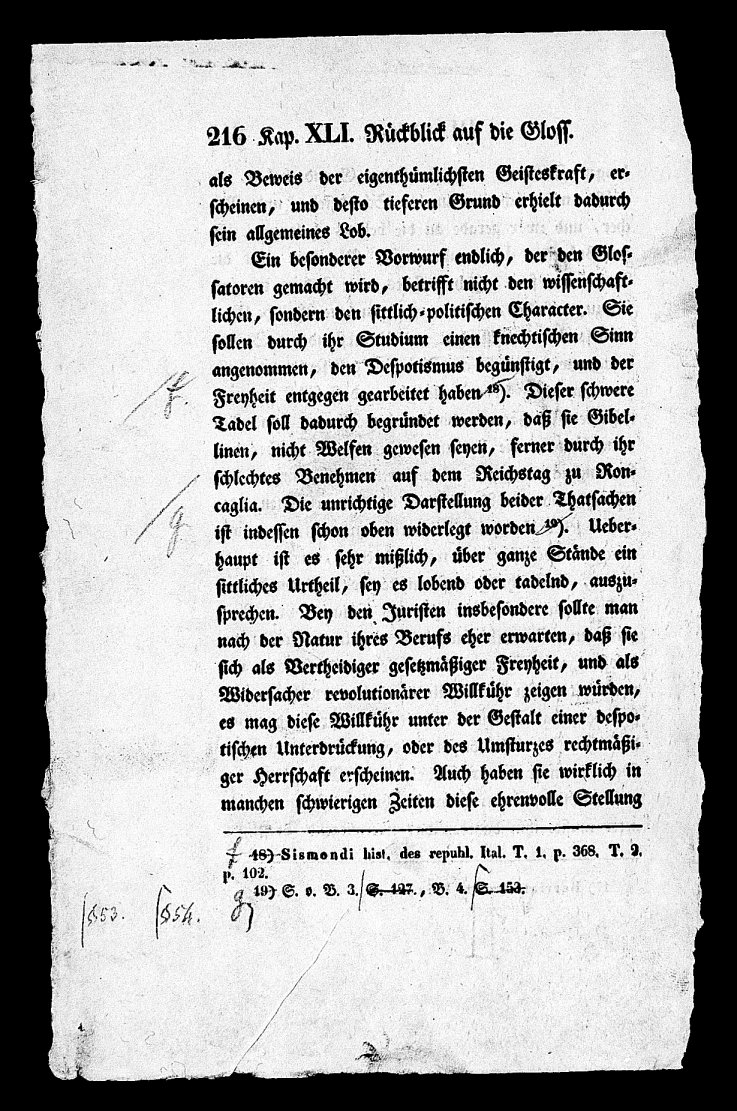 216 Kap. XLI. Rückblick auf die Gloss.
als Beweis der eigenthümlichsten Geisteskraft, er-
scheinen, und desto tieferen Grund erhielt dadurch
sein allgemeines Lob.
Ein besonderer Vorwurf endlich, der den Glos-
satoren gemacht wird, betrifft nicht den wissenschaft-
lichen, sondern den sittlich-politischen Character. Sie
sollen durch ihr Studium einen knechtischen Sinn
angenommen, den Despotismus begünstigt, und der
f. Freyheit entgegen gearbeitet haben 18). Dieser schwere
Tadel soll dadurch begründet werden, daß sie Gibel-
linen, nicht Welfen gewesen seyen, ferner durch ihr
schlechtes Benehmen auf dem Reichstag zu Ron-
caglia. Die unrichtige Darstellung beider Thatsachen
g ist indessen schon oben widerlegt worden 19). Ueber-
haupt ist es sehr mißlich, über ganze Stände ein
sittliches Urtheil, sey es lobend oder tadelnd, auszu-
sprechen. Bey den Juristen insbesondere sollte man
nach der Natur ihres Berufs eher erwarten, daß sie
sich als Vertheidiger gesetzmäßiger Freyheit, und als
Widersacher revolutionärer Willkühr zeigen würden,
es mag diese Willkühr unter der Gestalt einer despo-
tischen Unterdrückung, oder des Umsturzes rechtmäßi-
ger Herrschaft erscheinen. Auch haben sie wirklich in
manchen schwierigen Zeiten diese ehrenvolle Stellung
f 18) Sismondi hist. des republ. Ital. T. 1. p. 368. T. 2.
p. 102.
g) 19) S. o. B. 3. S. 127., B. 4. S. 153.
§53. §54.